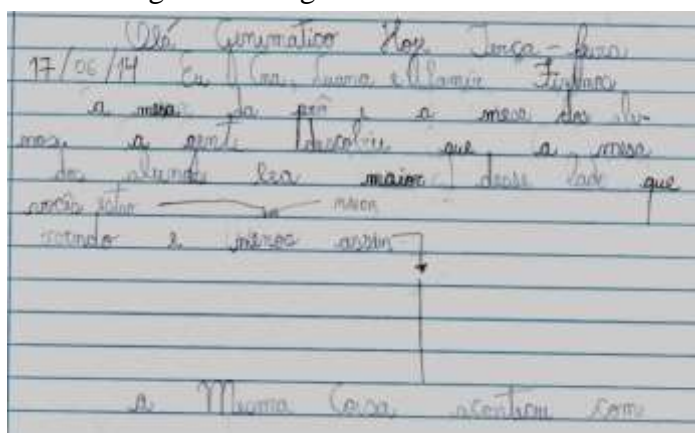 Olá Genimatico Hoje Terça-feira
17/06/14 Eu, Ana, Luana e
a mesa da prô e a mesa dos alu-
nos, a gente descobriu que a mesa
dos alunos era maior desse lado que
vocês estão maior
vendo e menos assim
a Mesma Coisa acontece com